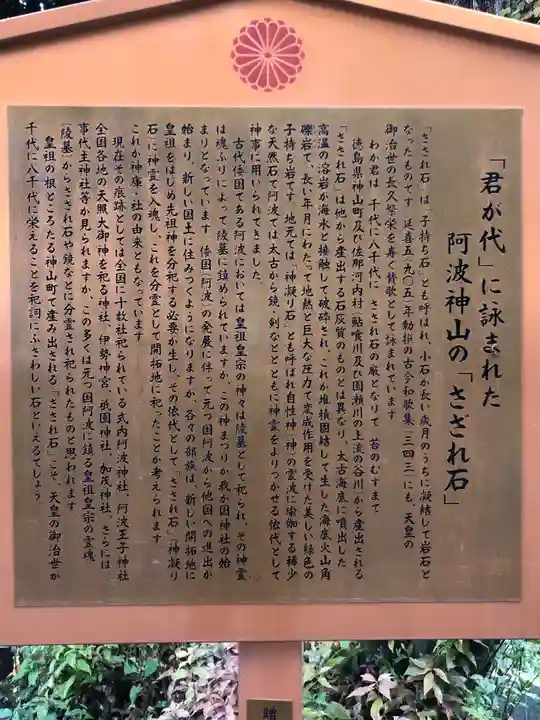 「君が代」に詠まれた
阿波神山の「さざれ石」
「さざれ石」は「子持ち石」とも呼ばれ、小石が長い歳月のうちに凝結して岩石と
なったものです 延喜五(九〇五)年勅撰の古今和歌集(三四三)にも、天皇の
御治世の長久繁栄を寿ぐ賛歌として詠まれています
わが君は 千代に八千代に さざれ石の巌となりて 苔のむすまて
徳島県神山町及び佐那河内村(鮎喰川及び園瀬川の上流の谷川)から産出される
「さざれ石」は他から産出する石灰質のものとは異なり、太古海底に噴出した
高温の溶岩が海水と接触して破砕され、これが堆積固結して生じた海底火山角
礫岩で、長い年月にわたって地熱と巨大な圧力で変成作用を受けた美しい緑色の
子持ち岩です 地元では「神凝り石」とも呼ばれ自性神(神)の霊波に瑜伽する稀少
な天然石で阿波では太古から鏡・剣などとともに神霊をよりつかせる依代として
神事に用いられてきました
古代倭国である阿波においては皇祖皇宗の神々は陵墓として祀られ、その神霊
は魂ふりによって陵墓に鎮められていますが、この神まつりが我が国神社の始
まりとなっています 倭国(阿波)の発展に伴って元つ国阿波から他国への進出が
始まり、新しい国土に住みつくようになりますが、各々の部族は、新しい開拓地に
皇祖をはじめ先祖神を分祀する必要が生じ、その依代として「さざれ石」(神凝り
石)に神霊を入魂し、これを分霊として開拓地に祀ったことが考えられます
これが神庫・社の由来ともなっています
現在その痕跡としては全国に十数社祀られている式内阿波神社、阿波王子神社
全国各地の天照大御神を祀る神社、伊勢神宮、祇園神社、加茂神社、さらには
事代主神社等が見られますが、この多くは元つ国阿波に鎮る皇祖皇宗の霊魂
(陵墓)からさざれ石や鏡などに分霊され祀られたものと思われます
皇祖の根ところたる神山町で産み出される「さざれ石」こそ、天皇の御治世が
千代に八千代に栄えることを祀詞にふさわしい石といえるでしょう